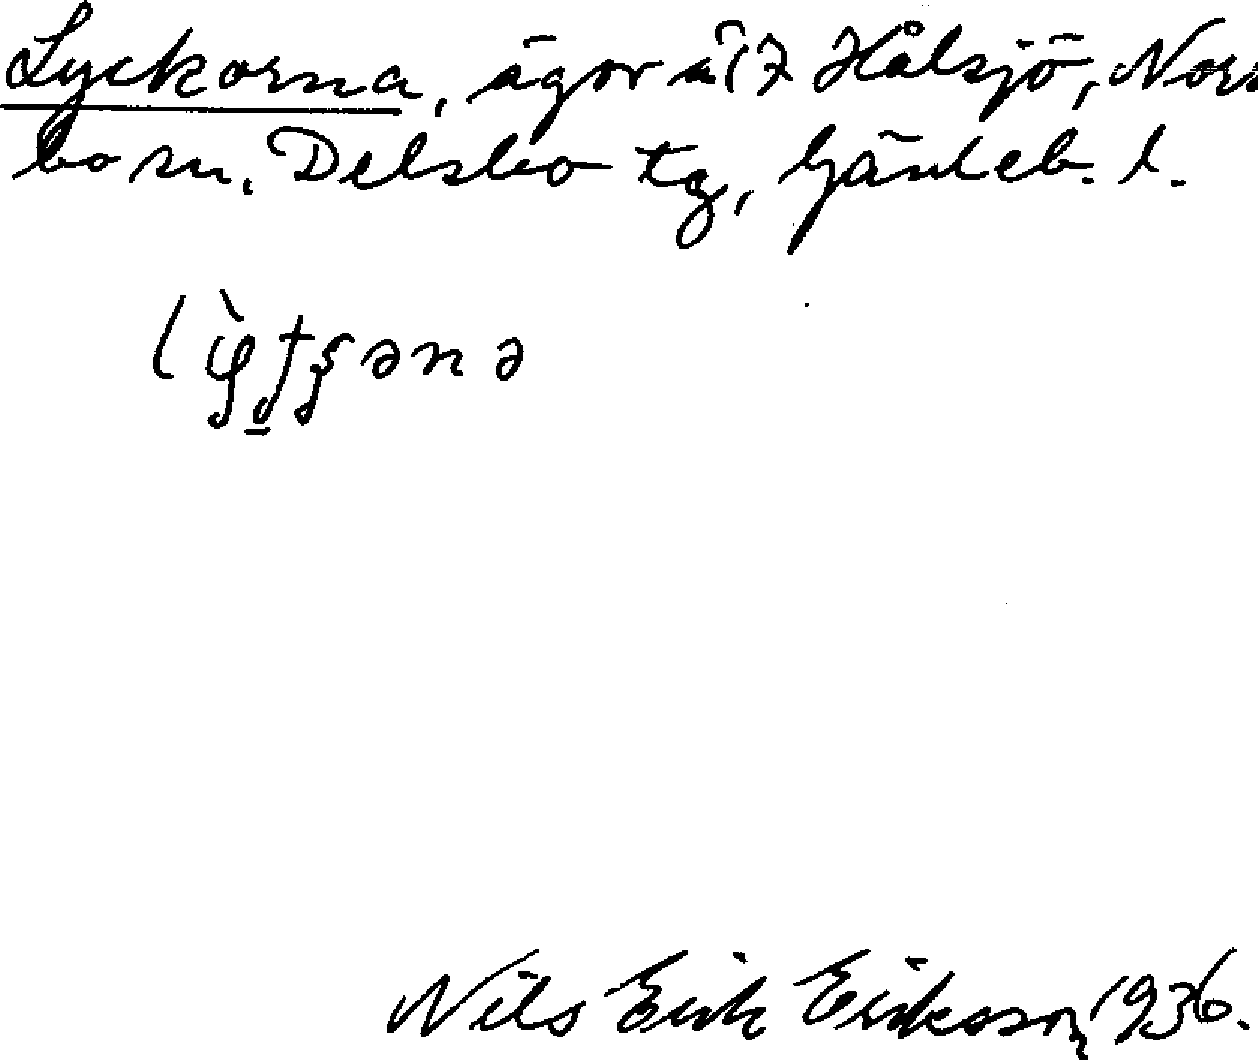 Lyckorna, ägor å 1/7 Hålsjö, Norr
bo sn. Delsbo tg, Gävleb. l.
Nils Erik Eriksson, 1936.